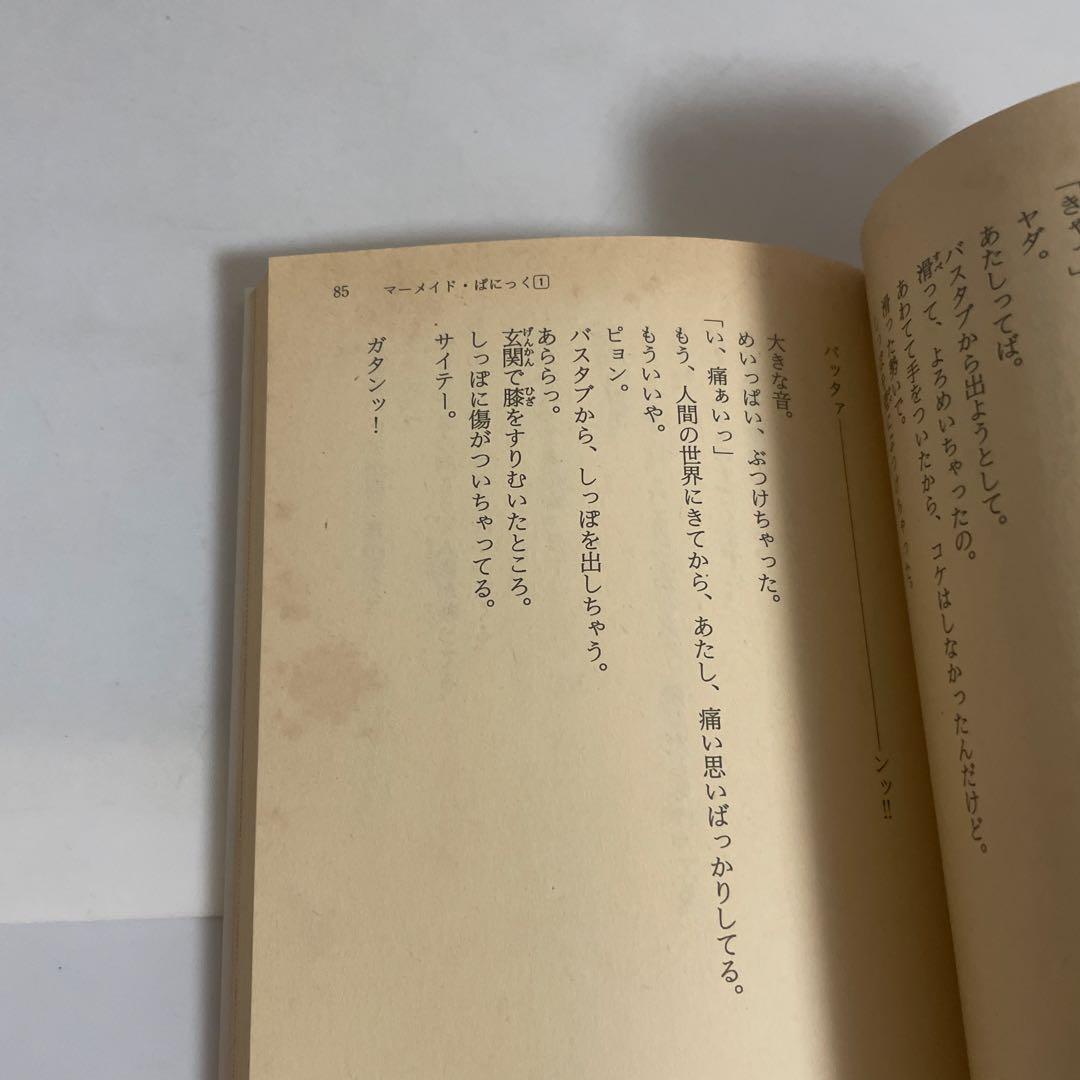 「きゃっ」
ヤダ。
あたしってば。
バスタブから出ようとして。
滑って、よろめいちゃったの。
あわてて手をついたから、コケはしなかったんだけど。
滑った勢いで。
バッタァ――――――――ンッ!!
大きな音。
めいっぱい、ぶつけちゃった。
「い、痛ぁいっ」
もう、人間の世界にきてから、あたし、痛い思いばっかりしてる。
もういいや。
ピョン。
バスタブから、しっぽを出しちゃう。
あららっ。
玄関で膝をすりむいたところ。
しっぽに傷がついちゃってる。
サイテー。
ガタンッ！
85 マーメイド・ぱにっく1